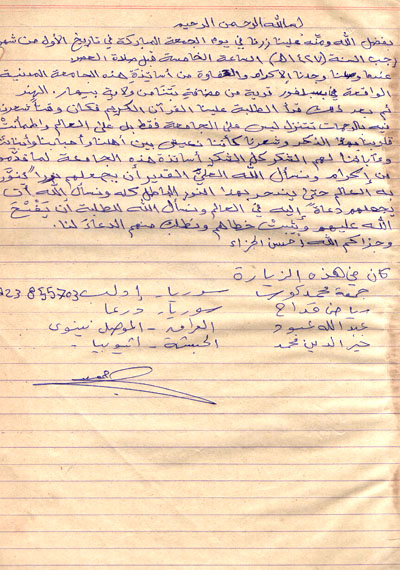 بسم الله الرحمن الرحيم
بفضل الله ومنّه علينا زرنا في يوم الجمعة المباركة في تاريخ الأول من شهر
رجب السنة (١٤٢٧ﻫ) الساعة الخامسة قبل صلاة العصر
عندما وصلنا وجدنا الإكرام والحفاوة من أساتيذة هذه الجامعة المدينية
الواقعة في قرية من ولاية بيهار، الهند
ثم بعد ذلك قرأ الطلبة علينا القرآن الكريم فكان وقتاً شعرنا
فيه بالرحمات تتنزل ليس على الجامعة فقط بل على العالم واطمأنت
قلوبنا بهذا الذكر وشعرنا كأننا نعيش بين أهلنا وأحبابنا
لهم الشكر كل الشكر أساتذة هذه الجامعة لما قدموه
من إكرام ونسأل الله العليّ القدير أن يجعلهم نور
به العالم حتى بهذا النور الباطل كله ونسأل الله أن
يجعلهم دعاةً إليه في العالم ونسأل الله للطلبة أن يَفْتَحَ
الله عليهم ويثبِّتَ خطاهم ونطلب منهم الدعاء لنا.
وجزاكم الله أحسن الجزاء
كان في هذه الزيارة
جمعة محمد سوريا - إدلب 23855703
رياض قداح سوريا - درعا
عبد الله عبود العراق - الموصل نينوى
خير الدين محمد الحبشة - اثيوبيا -